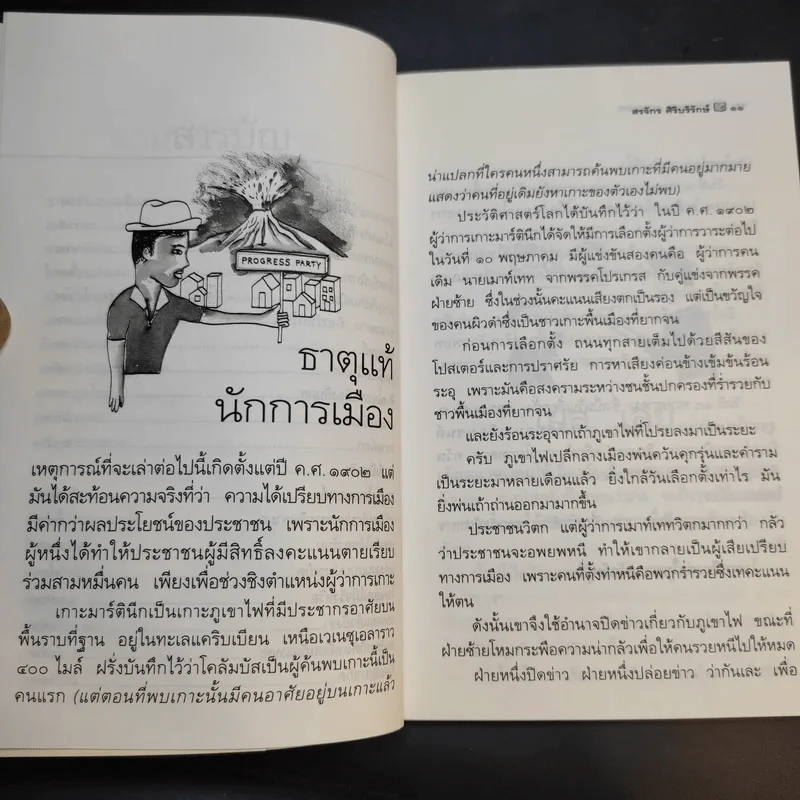 PROGRESS PARTY
ธาตุแท้
นักการเมือง
เหตุการณ์ที่จะเล่าต่อไปนี้เกิดตั้งแต่ปี ค.ศ. ๑๙๐๒ แต่
มันได้สะท้อนความจริงที่ว่า ความได้เปรียบทางการเมือง
มีค่ากว่าผลประโยชน์ของประชาชน เพราะนักการเมือง
ผู้หนึ่งได้ทำให้ประชาชนผู้มีสิทธิ์ลงคะแนนตายเรียบ
ร่วมสามหมื่นคน เพียงเพื่อช่วงชิงตำแหน่งผู้ว่าการเกาะ
เกาะมาร์ตินีกเป็นเกาะภูเขาไฟที่มีประชากรอาศัยบน
พื้นราบที่ฐาน อยู่ในทะเลแคริบเบียน เหนือเวเนซุเอลาราว
๔๐๐ ไมล์ ฝรั่งบันทึกไว้ว่าโคลัมบัสเป็นผู้ค้นพบเกาะนี้เป็น
คนแรก (แต่ตอนที่พบเกาะนั้นมีคนอาศัยอยู่บนเกาะแล้ว
สรจักร ศิริบริรักษ์ ๑๑
น่าแปลกที่ใครคนหนึ่งสามารถค้นพบเกาะที่มีคนอยู่มากมาย
แสดงว่าคนที่อยู่เดิมยังหาเกาะของตัวเองไม่พบ)
ประวัติศาสตร์โลกได้บันทึกไว้ว่า ในปี ค.ศ. ๑๙๐๒
ผู้ว่าการเกาะมาร์ตินีกได้จัดให้มีการเลือกตั้งผู้ว่าการวาระต่อไป
ในวันที่ ๑๐ พฤษภาคม มีผู้แข่งขันสองคนคือ ผู้ว่าการคน
เดิม นายเมาท์เทท จากพรรคโปรเกรส กับคู่แข่งจากพรรค
ฝ่ายซ้าย ซึ่งในช่วงนั้นคะแนนเสียงตกเป็นรอง แต่เป็นขวัญใจ
ของคนผิวดำซึ่งเป็นชาวเกาะพื้นเมืองที่ยากจน
ก่อนการเลือกตั้ง ถนนทุกสายเต็มไปด้วยสีสันของ
โปสเตอร์และการปราศรัย การหาเสียงค่อนข้างเข้มข้นร้อน
ระอุ เพราะมันคือสงครามระหว่างชนชั้นปกครองที่ร่ำรวยกับ
ชาวพื้นเมืองที่ยากจน
และยังร้อนระอุจากเถ้าภูเขาไฟที่โปรยลงมาเป็นระยะ
ครับ ภูเขาไฟเปลีกลางเมืองพ่นควันคุกรุ่นและคำราม
เป็นระยะมาหลายเดือนแล้ว ยิ่งใกล้วันเลือกตั้งเท่าไร มัน
ยิ่งพ่นเถ้าถ่านออกมามากขึ้น
ประชาชนวิตก แต่ผู้ว่าการเมาท์เททวิตกมากกว่า กลัว
ว่าประชาชนจะอพยพหนี ทำให้เขากลายเป็นผู้เสียเปรียบ
ทางการเมือง เพราะคนที่ตั้งท่าหนีคือพวกร่ำรวยซึ่งเทคะแนน
ให้ตน
ดังนั้นเขาจึงใช้อำนาจปิดข่าวเกี่ยวกับภูเขาไฟ ขณะที่
ฝ่ายซ้ายโหมกระพือความน่ากลัวเพื่อให้คนรวยหนีไปให้หมด
ฝ่ายหนึ่งปิดข่าว ฝ่ายหนึ่งปล่อยข่าว ว่ากันเละ เพื่อ